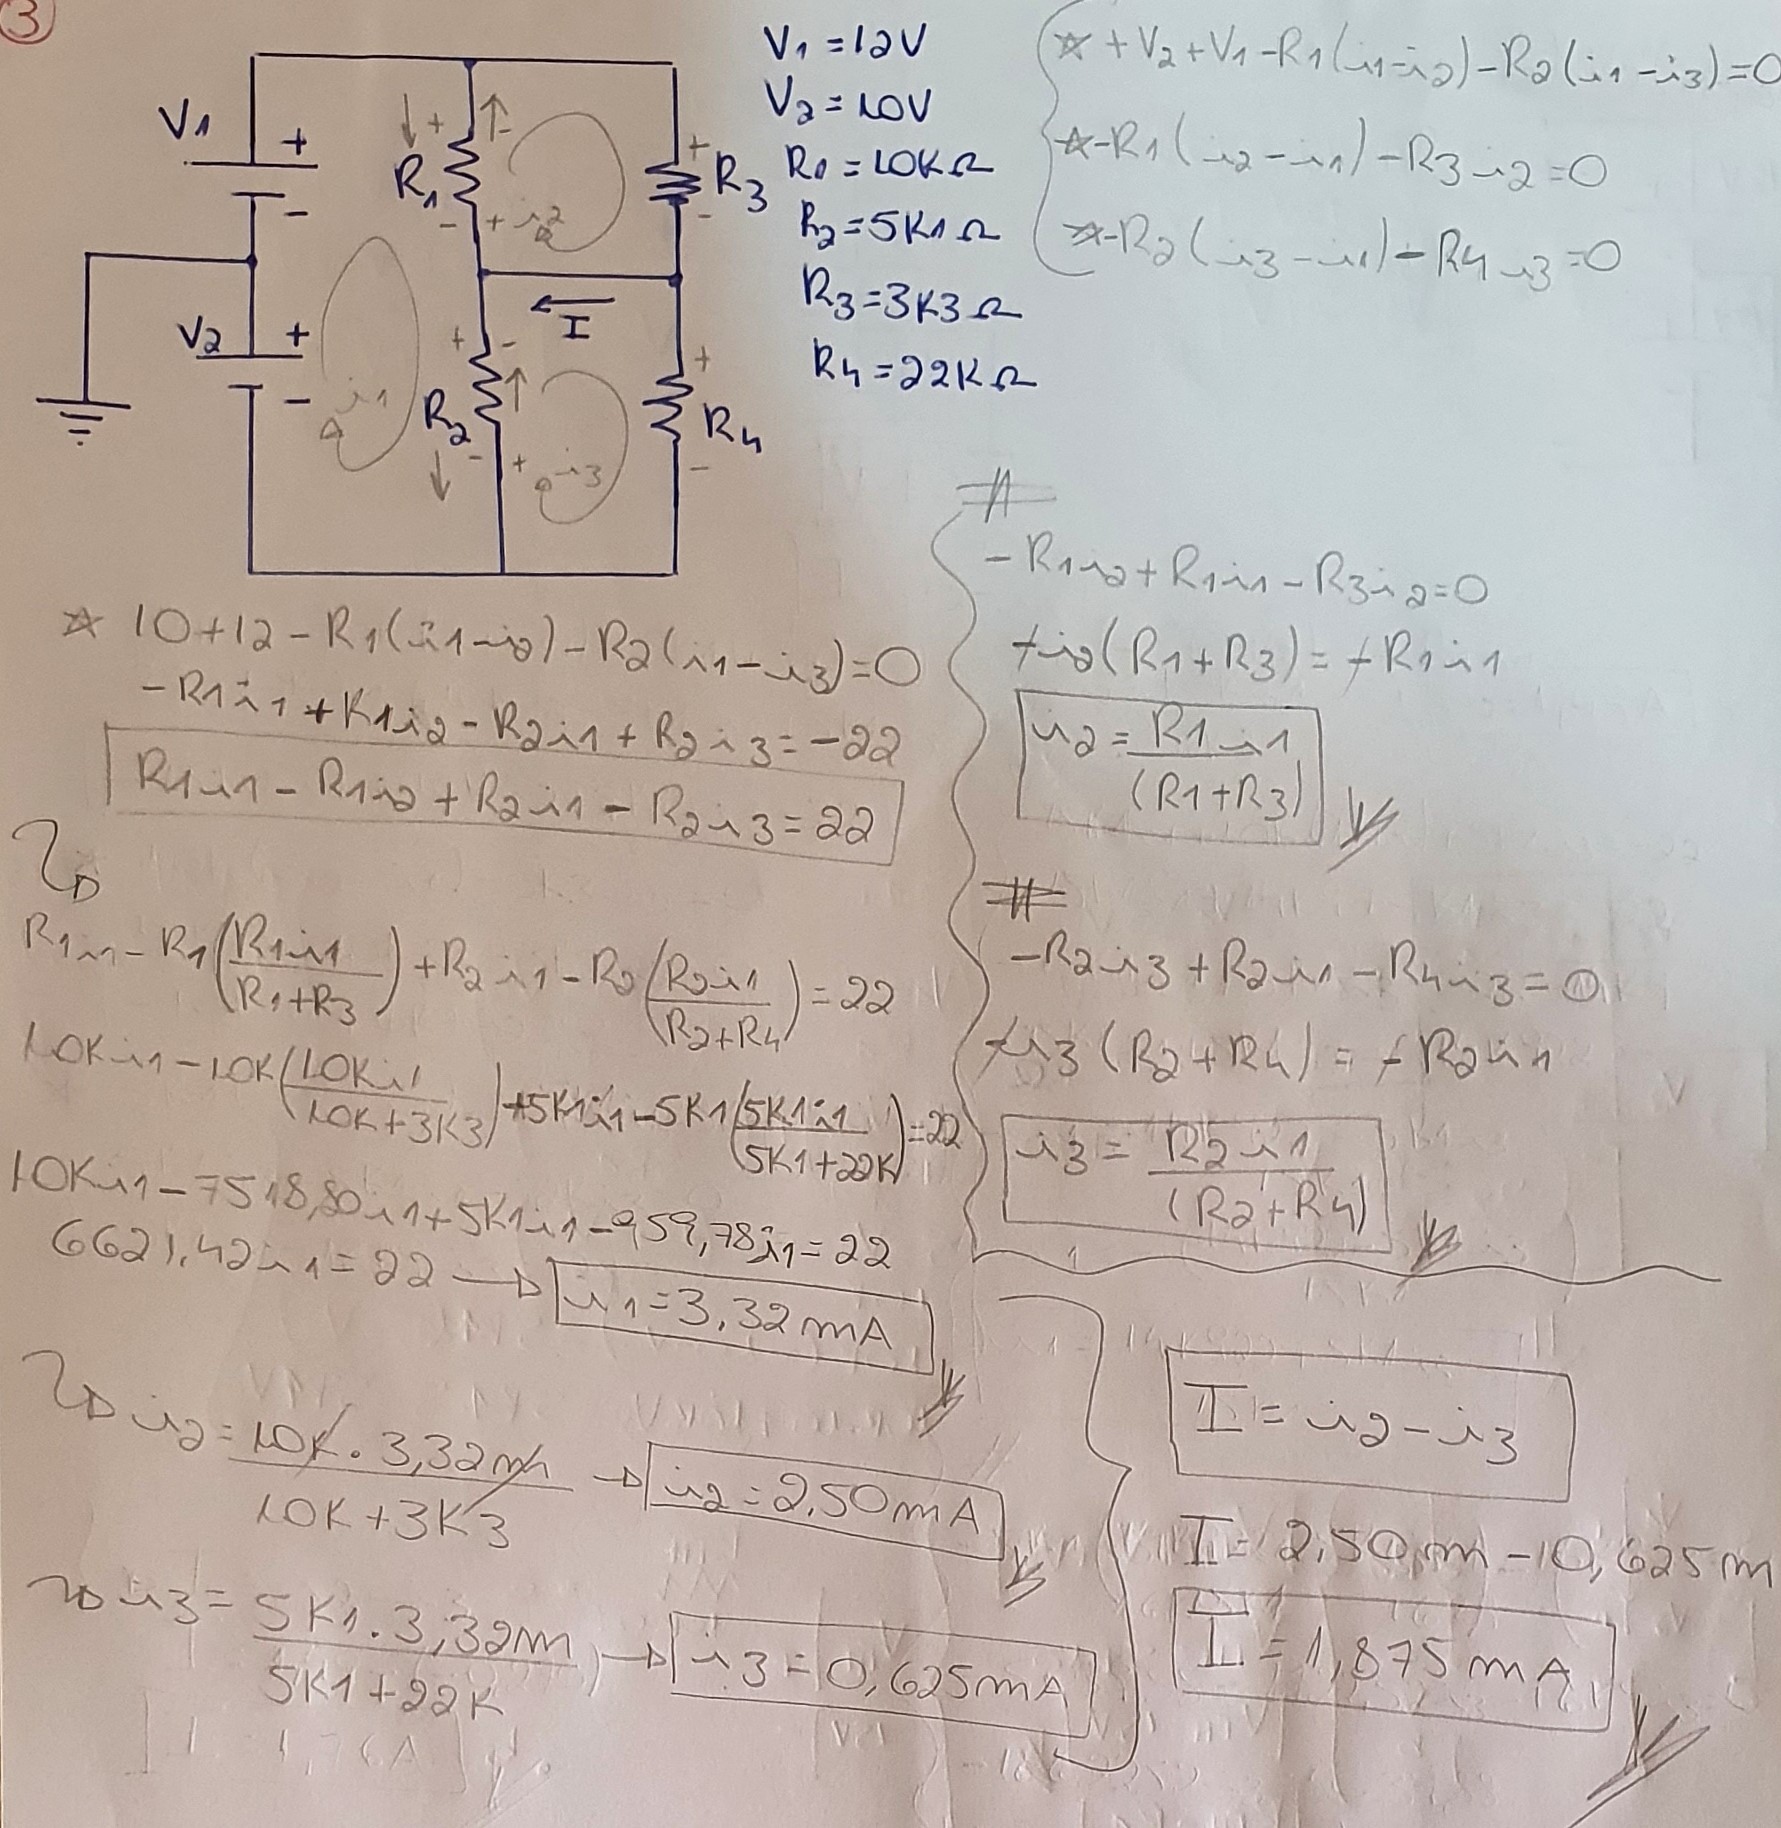 3
V1
+
-
V2
+
-
R1
+
-
-
+
i2
R3
+
-
I
i1
R2
+
-
-
+
i3
R4
+
-
V1 = 12V
V2 = 10V
R1 = 10KΩ
R2 = 5K1Ω
R3 = 3K3Ω
R4 = 22KΩ
☆ + V2 + V1 - R1(i1-i2) - R2(i1-i3) = 0
☆ -R1(i2-i1) - R3i2 = 0
☆ -R2(i3-i1) - R4i3 = 0
☆ 10+12 - R1(i1-i2) - R2(i1-i3) = 0
-R1i1 + R1i2 - R2i1 + R2i3 = -22
R1i1 - R1i2 + R2i1 - R2i3 = 22
R1i1 - R1(R1i1/(R1+R3)) + R2i1 - R2(R2i1/(R2+R4)) = 22
10Ki1 - 10K(10Ki1/(10K+3K3)) + 5K1i1 - 5K1(5K1i1/(5K1+22K)) = 22
10Ki1 - 7518,80i1 + 5K1i1 - 959,78i1 = 22
6621,42i1 = 22 → i1 = 3,32mA
i2 = 10K . 3,32m / 10K+3K3 → i2 = 2,50mA
i3 = 5K1 . 3,32m / 5K1+22K → i3 = 0,625mA
-R1i2 + R1i1 - R3i2 = 0
+i2(R1+R3) = +R1i1
i2 = R1i1/(R1+R3)
-R2i3 + R2i1 - R4i3 = 0
+i3(R2+R4) = +R2i1
i3 = R2i1/(R2+R4)
I = i2 - i3
I = 2,50m - 10,625m
I = 1,875mA